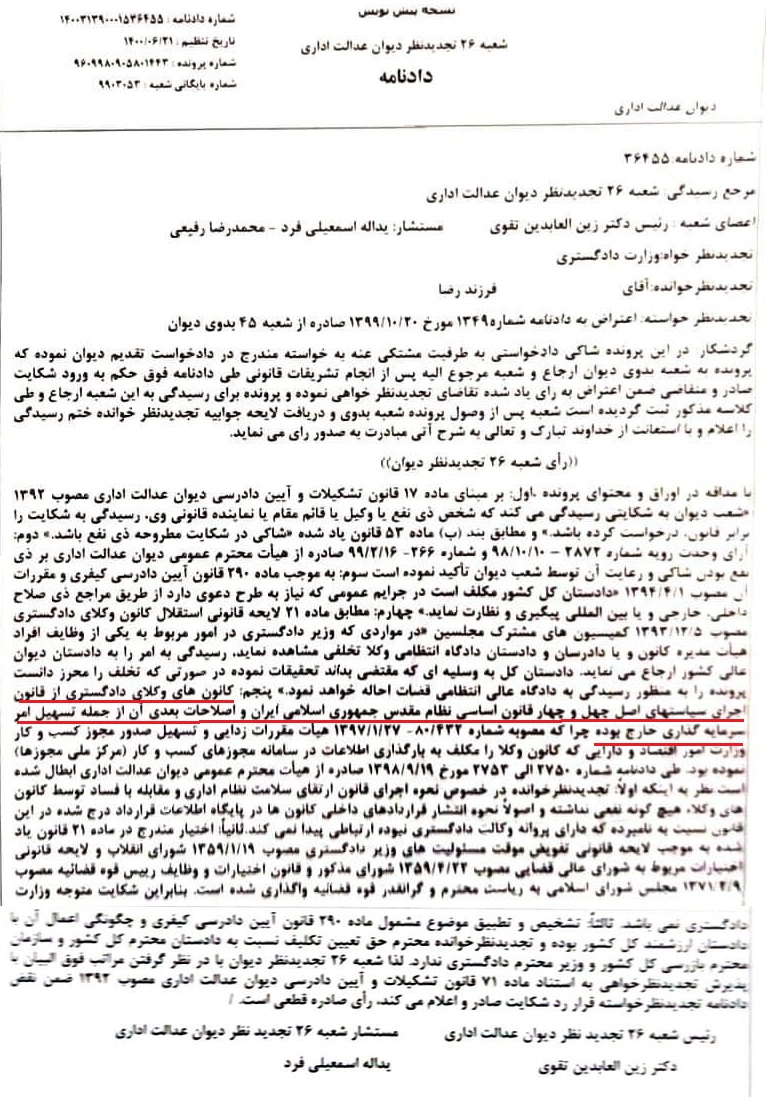 نسخه پیش نویس
شعبه ۲۶ تجدیدنظر دیوان عدالت اداری
دادنامه
شماره دادنامه : ۱۴۰۰۳۱۳۹۰۰۰۱۵۳۶۴۵۵
تاریخ تنظیم : ۱۴۰۰/۰۶/۲۱
شماره پرونده : ۹۶۰۹۹۸۰۹۰۵۸۰۱۴۴۳
شماره بایگانی شعبه : ۹۹۰۳۰۵۳
دیوان عدالت اداری
شماره دادنامه:۳۶۴۵۵
مرجع رسیدگی: شعبه ۲۶ تجدیدنظر دیوان عدالت اداری
اعضای شعبه : رئیس دکتر زین العابدین تقوی مستشار: یداله اسمعیلی فرد - محمدرضا رفیعی
تجدیدنظر خواه:وزارت دادگستری
تجدیدنظرخوانده:آقای فرزند رضا
تجدیدنظر خواسته: اعتراض به دادنامه شماره۱۳۴۹ مورخ ۱۳۹۹/۱۰/۲۰ صادره از شعبه ۴۵ بدوی دیوان
گردشکار: در این پرونده شاکی دادخواستی به طرفیت مشتکی عنه به خواسته مندرج در دادخواست تقدیم دیوان نموده که
پرونده به شعبه بدوی دیوان ارجاع و شعبه مرجوع الیه پس از انجام تشریفات قانونی طی دادنامه فوق حکم به ورود شکایت
صادر و متقاضی ضمن اعتراض به رای یاد شده تقاضای تجدیدنظر خواهی نموده و پرونده برای رسیدگی به این شعبه ارجاع و طی
کلاسه مذکور ثبت گردیده است شعبه پس از وصول پرونده شعبه بدوی و دریافت لایحه جوابیه تجدیدنظر خوانده ختم رسیدگی
را اعلام و با استعانت از خداوند تبارک و تعالی به شرح آتی مبادرت به صدور رای می نماید.
((رأی شعبه ۲۶ تجدیدنظر دیوان))
با مداقه در اوراق و محتوای پرونده .اول: بر مبنای ماده ۱۷ قانون تشکیلات و آیین دادرسی دیوان عدالت اداری مصوب ۱۳۹۲
«شعب دیوان به شکایتی رسیدگی می کند که شخص ذی نفع یا وکیل یا قائم مقام یا نماینده قانونی وی، رسیدگی به شکایت را
برابر قانون، درخواست کرده باشد.» و مطابق بند (ب) ماده ۵۳ قانون یاد شده «شاکی در شکایت مطروحه ذی نفع باشد.» دوم:
آرای وحدت رویه شماره ۲۸۷۲ - ۹۸/۱۰/۱۰ و شماره ۲۶۶- ۹۹/۲/۱۶ صادره از هیأت محترم عمومی دیوان عدالت اداری بر ذی
نفع بودن شاکی و رعایت آن توسط شعب دیوان تأکید نموده است سوم: به موجب ماده ۲۹۰ قانون آیین دادرسی کیفری و مقررات
آن مصوب ۱۳۹۴/۴/۱ «دادستان کل کشور مکلف است در جرایم عمومی که نیاز به طرح دعوی دارد از طریق مراجع ذی صلاح
داخلی، خارجی و یا بین المللی پیگیری و نظارت نماید.» چهارم: مطابق ماده ۲۱ لایحه قانونی استقلال کانون وکلای دادگستری
مصوب ۱۳۹۳/۱۲/۵ کمیسیون های مشترک مجلسین «در مواردی که وزیر دادگستری در امور مربوط به یکی از وظایف افراد
هیأت مدیره کانون و یا دادرسان و دادستان دادگاه انتظامی وکلا تخلفی مشاهده نماید، رسیدگی به امر را به دادستان دیوان
عالی کشور ارجاع می نماید. دادستان کل به وسیله ای که مقتضی بداند تحقیقات نموده در صورتی که تخلف را محرز دانست
پرونده را به منظور رسیدگی به دادگاه عالی انتظامی قضات احاله خواهد نمود.» پنجم: کانون های وکلای دادگستری از قانون
اجرای سیاستهای اصل چهل و چهار قانون اساسی نظام مقدس جمهوری اسلامی ایران و اصلاحات بعدی آن از جمله تسهیل امر
سرمایه گذاری خارج بوده چرا که مصوبه شماره ۸۰/۴۳۲- ۱۳۹۷/۱/۲۷ هیأت مقررات زدایی و تسهیل صدور مجوز کسب و کار
وزارت امور اقتصاد و دارایی که کانون وکلا را مکلف به بارگذاری اطلاعات در سامانه مجوزهای کسب و کار (مرکز ملی مجوزها)
نموده بود. طی دادنامه شماره ۲۷۵۰ الی ۲۷۵۳ مورخ ۱۳۹۸/۹/۱۹ صادره از هیأت محترم عمومی دیوان عدالت اداری ابطال شده
است نظر به اینکه اولاً: تجدیدنظرخوانده در خصوص نحوه اجرای قانون ارتقای سلامت نظام اداری و مقابله با فساد توسط کانون
های وکلاء هیچ گونه نفعی نداشته و اصولاً نحوه انتشار قراردادهای داخلی کانون ها در پایگاه اطلاعات قرارداد درج شده در این
قانون نسبت به نامبرده که دارای پروانه وکالت دادگستری نبوده ارتباطی پیدا نمی کند.ثانیاً: اختیار مندرج در ماده ۲۱ قانون یاد
شده به موجب لایحه قانونی تفویض موقت مسئولیت های وزیر دادگستری مصوب ۱۳۵۹/۱/۱۹ شورای انقلاب و لایحه قانونی
اختیارات مربوط به شورای عالی قضایی مصوب ۱۳۵۹/۴/۲۲ شورای مذکور و قانون اختیارات و وظایف رییس قوه قضائیه مصوب
۱۳۷۱/۲/۹ مجلس شورای اسلامی به ریاست محترم و گرانقدر قوه قضائیه واگذاری شده است. بنابراین شکایت متوجه وزارت
دادگستری نمی باشد. ثالثاً: تشخیص و تطبیق موضوع مشمول ماده ۲۹۰ قانون آیین دادرسی کیفری و چگونگی اعمال آن با
دادستان ارزشمند کل کشور بوده و تجدیدنظرخوانده محترم حق تعیین تکلیف نسبت به دادستان محترم کل کشور و سازمان
محترم بازرسی کل کشور و وزیر محترم دادگستری ندارد. لذا شعبه ۲۶ تجدیدنظر دیوان با در نظر گرفتن مراتب فوق البیان با
پذیرش تجدیدنظرخواهی به استناد ماده ۷۱ قانون تشکیلات و آیین دادرسی دیوان عدالت اداری مصوب ۱۳۹۲ ضمن نقض
دادنامه تجدیدنظرخواسته قرار رد شکایت صادر و اعلام می کند، رأی صادره قطعی است. /
رئیس شعبه ۲۶ تجدید نظر دیوان عدالت اداری مستشار شعبه ۲۶ تجدید نظر دیوان عدالت اداری
دکتر زین العابدین تقوی یداله اسمعیلی فرد